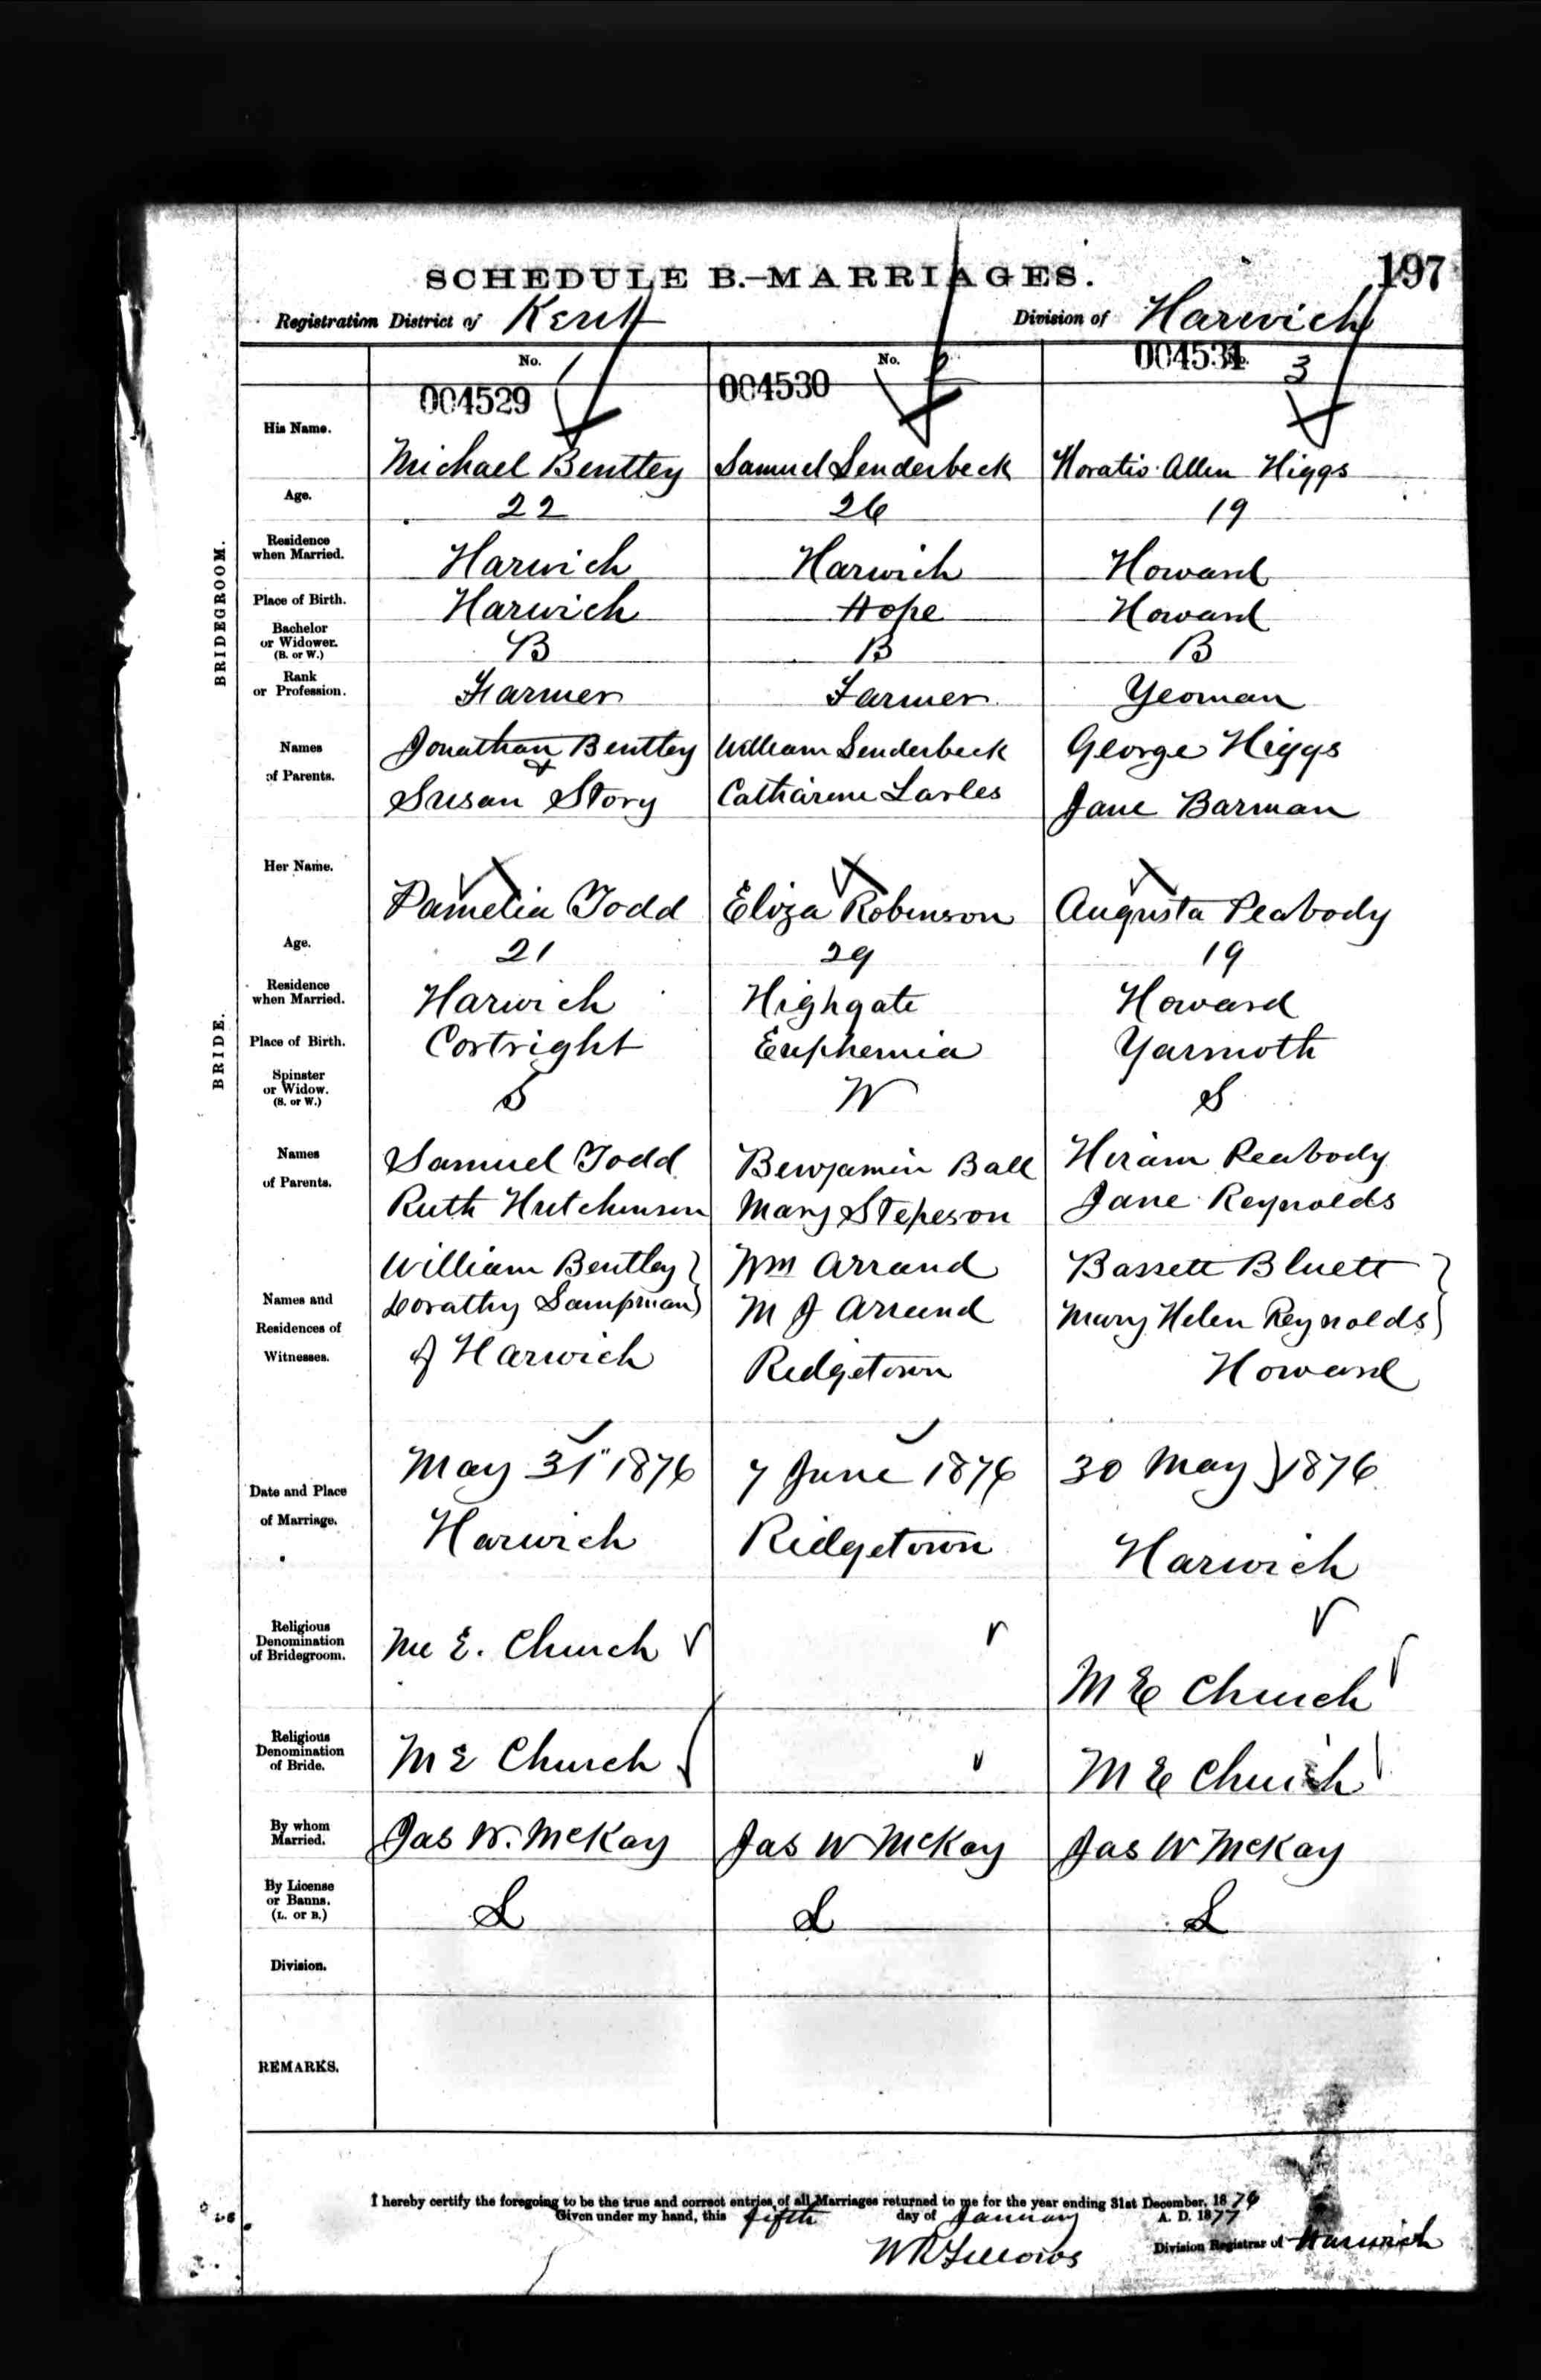 SCHEDULE B.—MARRIAGES. 197
Registration District of Kent Division of Harwich
No. 1 No. 2 No. 3
004529 004530 004531
BRIDEGROOM.
His Name. Michael Bentley Samuel Senderbeck Horatio Allen Higgs
Age. 22 26 19
Residence when Married. Harwich Harwich Howard
Place of Birth. Harwich Hope Howard
Bachelor or Widower. (B. or W.) B B B
Rank or Profession. Farmer Farmer Yeoman
Names of Parents. Jonathan Bentley William Senderbeck George Higgs
& Susan Story Catharine Larles Jane Barman
BRIDE.
Her Name. Pamelia Todd Eliza Robinson Augusta Peabody
Age. 21 29 19
Residence when Married. Harwich Highgate Howard
Place of Birth. Cortright Euphemia Yarmoth
Spinster or Widow. (S. or W.) S W S
Names of Parents. Samuel Todd Benjamin Ball Hiram Peabody
Ruth Hutchinson Mary Stepeson Jane Reynolds
Names and Residences of Witnesses. William Bentley Wm Arrand Bassett Bluett
Dorathy Sampman M J Arrand Mary Helen Reynolds
of Harwich Ridgetown Howard
Date and Place of Marriage. May 31" 1876 7 June 1876 30 May 1876
Harwich Ridgetown Harwich
Religious Denomination of Bridegroom. M E. Church M E Church
Religious Denomination of Bride. M E Church M E Church
By whom Married. Jas W. McKay Jas W McKay Jas W McKay
By License or Banns. (L. or B.) L L L
Division.
REMARKS.
I hereby certify the foregoing to be the true and correct entries of all Marriages returned to me for the year ending 31st December, 1876
Given under my hand, this fifth day of January A. D. 1877
W R Fellows Division Registrar of Harwich